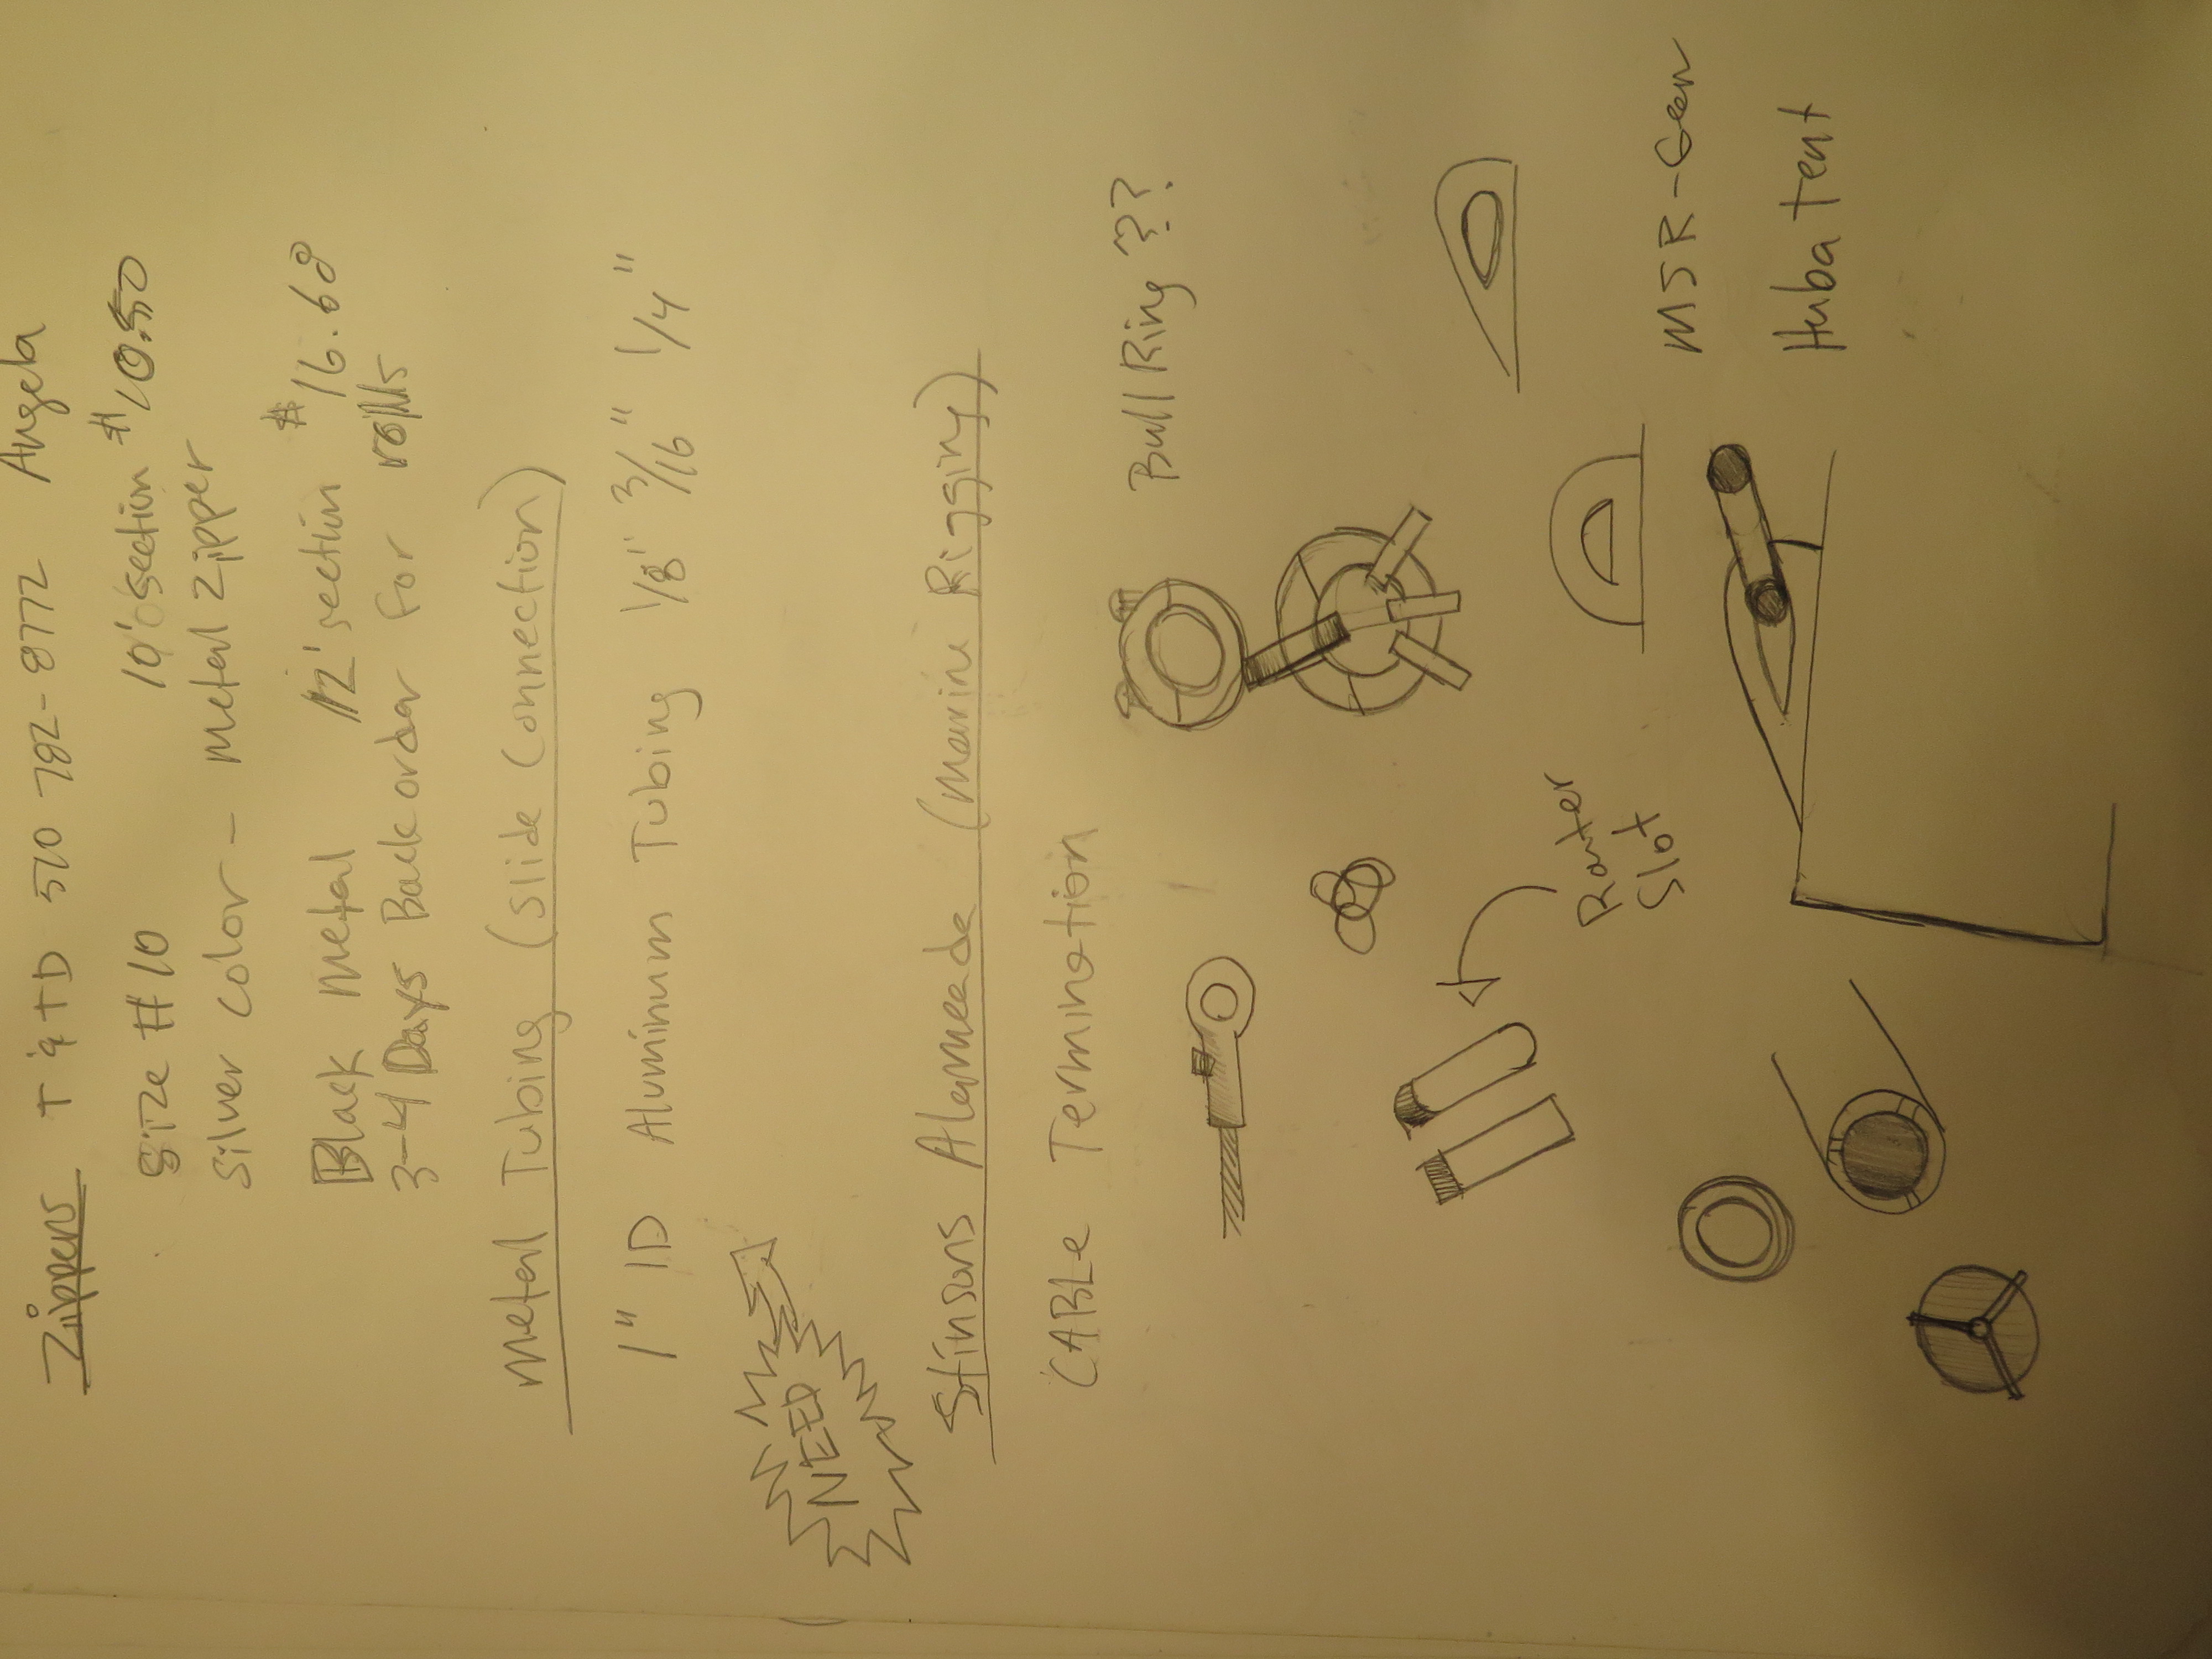 Zippers T & TD 510 782-8772 Angela
Size #10 10' section $10.50
Silver color - metal zipper
Black Metal 12' section $16.68
3-4 Days Back order for rolls
Metal Tubing (slide connection)
1" ID Aluminum Tubing 1/8" 3/16" 1/4"
NEED
Stinsons Alameada (Marine Rigging)
CABLe Termination
Bull Ring ???
Router
Slot
MSR-Gear
Huba Tent